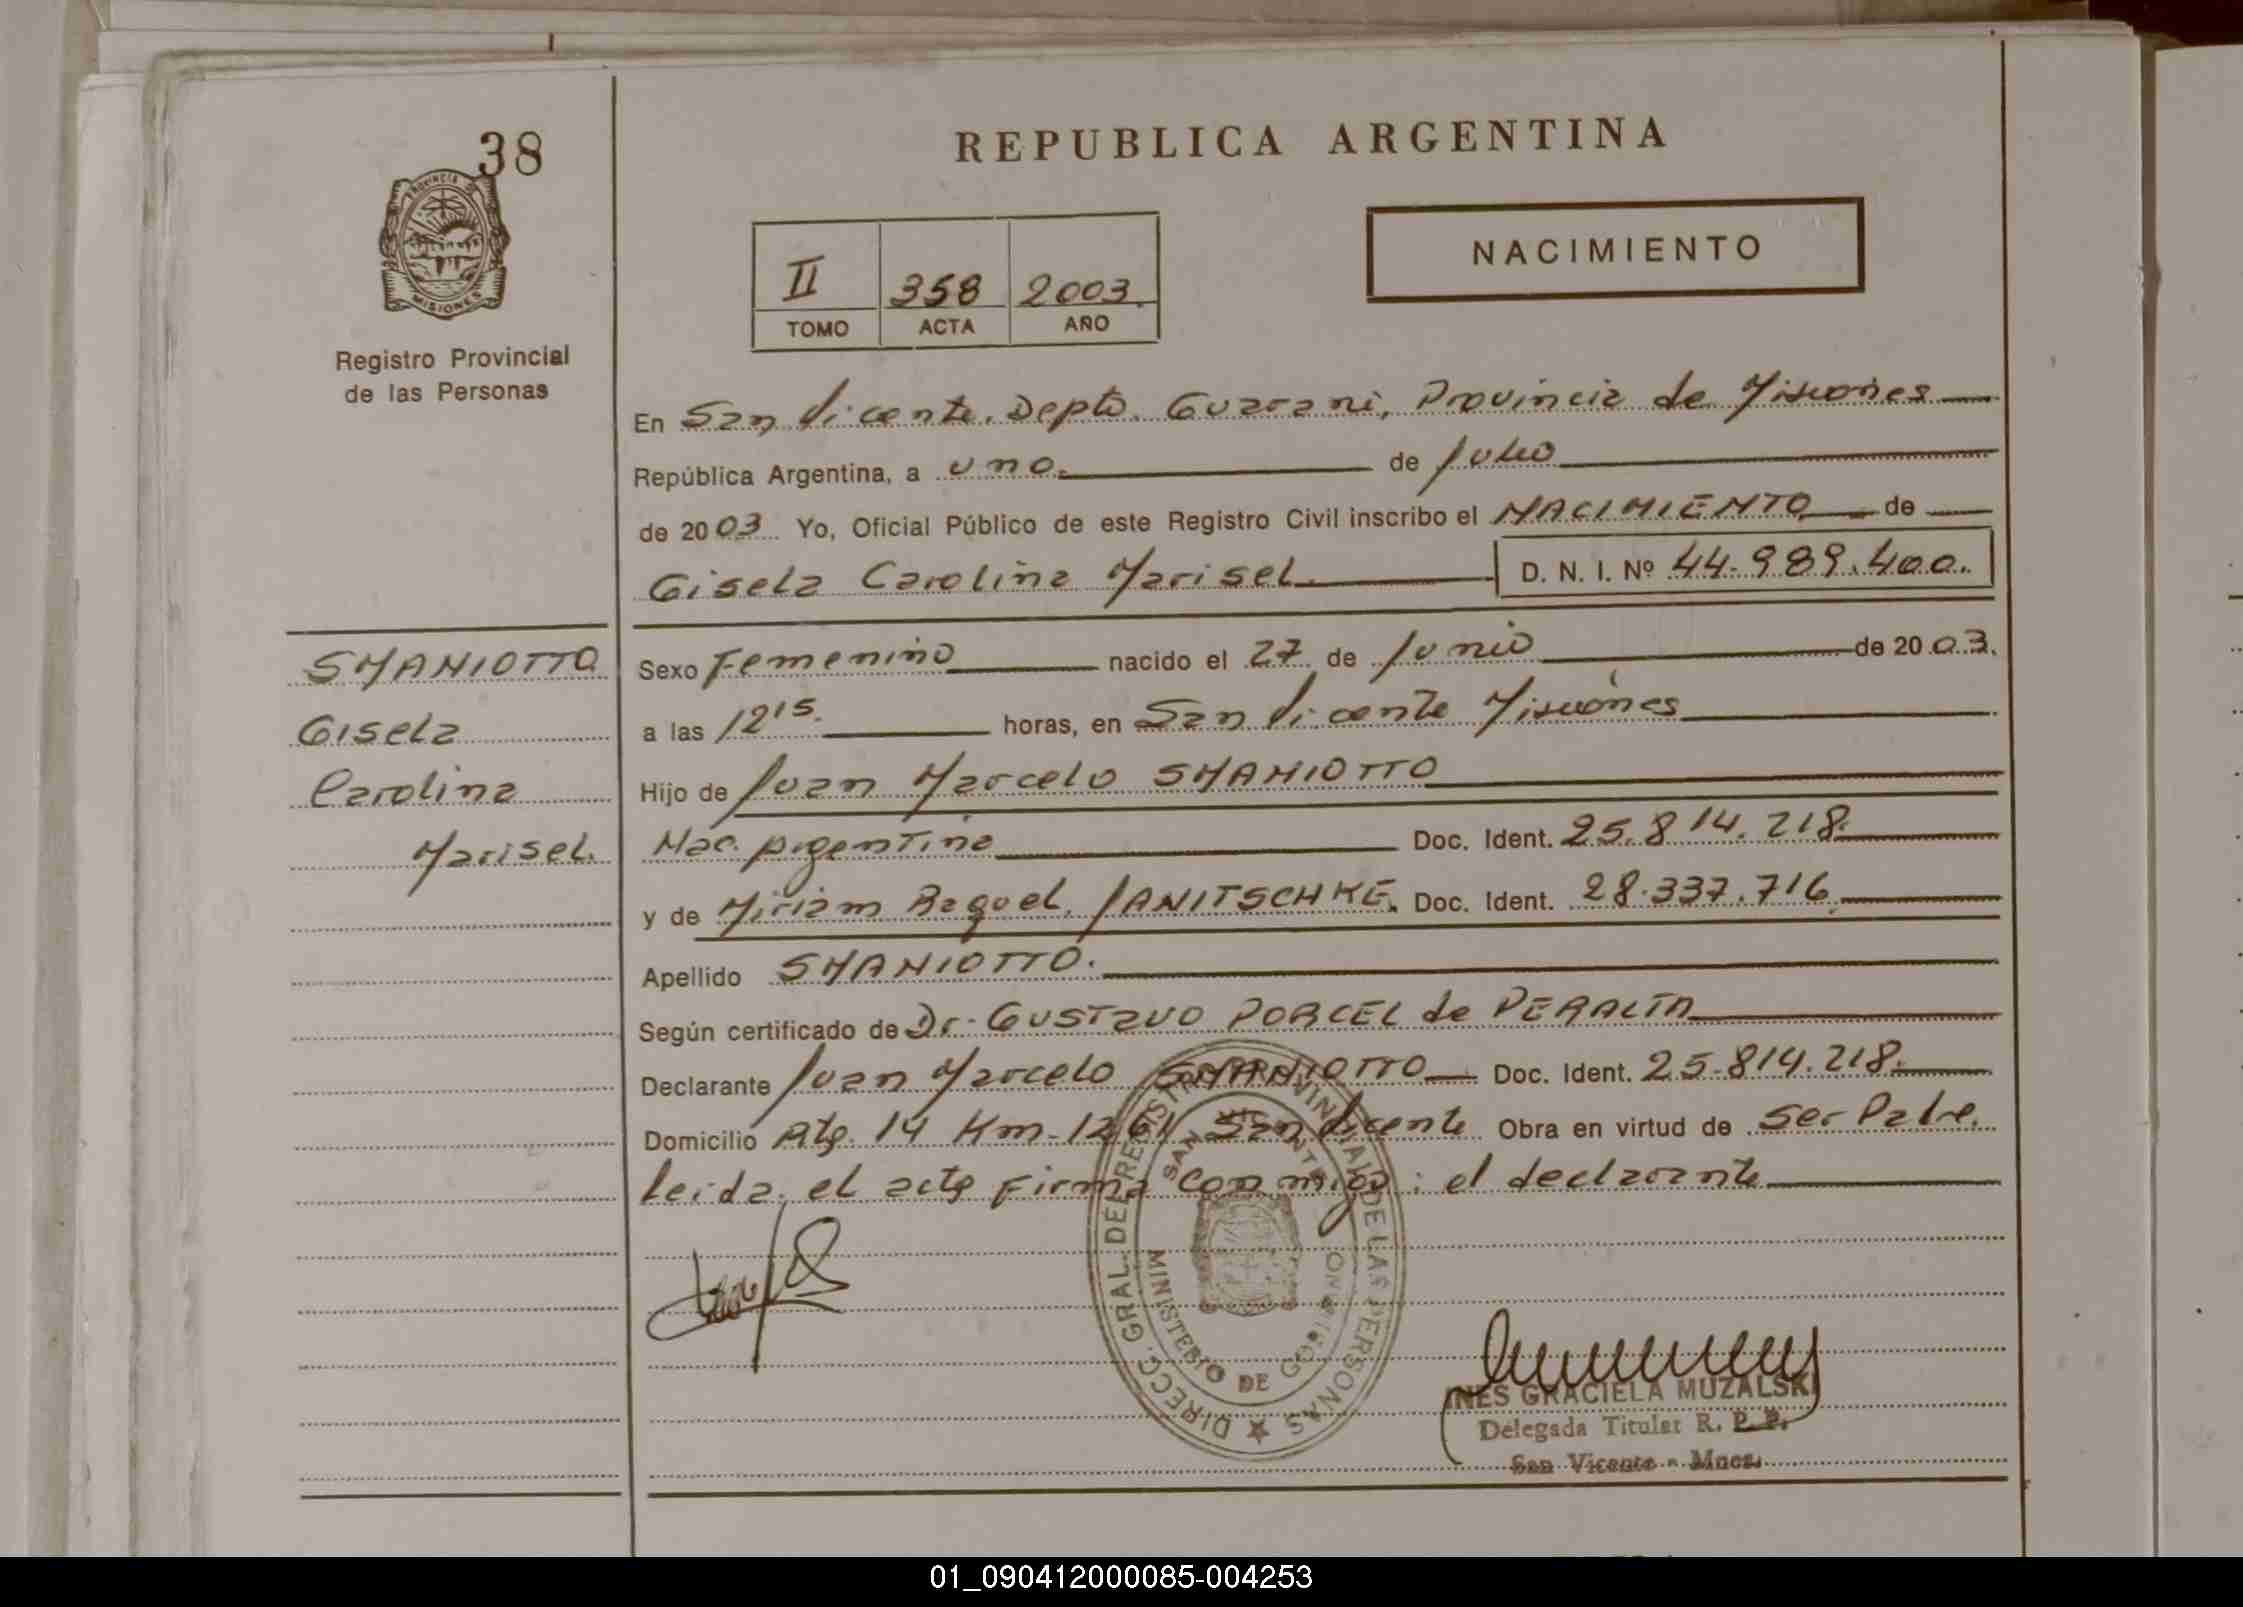 38
PROVINCIA DE
MISIONES
Registro Provincial
de las Personas
REPUBLICA ARGENTINA
NACIMIENTO
II 358 2003
TOMO ACTA AÑO
En San Vicente. Depto. Guarani, Provincia de Misiones
República Argentina, a uno. de Julio
de 2003 Yo, Oficial Público de este Registro Civil inscribo el NACIMIENTO de
Gisela Carolina Marisel. D. N. I. Nº 44.989.400.
SMANIOTTO
Gisela
Carolina
Marisel.
Sexo Femenino nacido el 27 de Junio de 2003.
a las 12 15. horas, en San Vicente Misiones
Hijo de Juan Marcelo SMANIOTTO
Nac. Argentina Doc. Ident. 25.814.218.
y de Miriam Raquel JANITSCHKE. Doc. Ident. 28.337.716
Apellido SMANIOTTO.
Según certificado de Dr. GUSTAVO PORCEL de PERALTA
Declarante Juan Marcelo SMANIOTTO Doc. Ident. 25.814.218.
Domicilio 14 Km. 1261 San Vicente Obra en virtud de ser Padre.
leida el acta firma conmigo: el declarante
DIRECC. GRAL. DE REGISTRO PROVINCIAL DE LAS PERSONAS
SAN VICENTE
MINISTERIO DE GOBIERNO
INES GRACIELA MUZALSKI
Delegada Titular R. P. P.
San Vicente - Mnes.
01_090412000085-004253